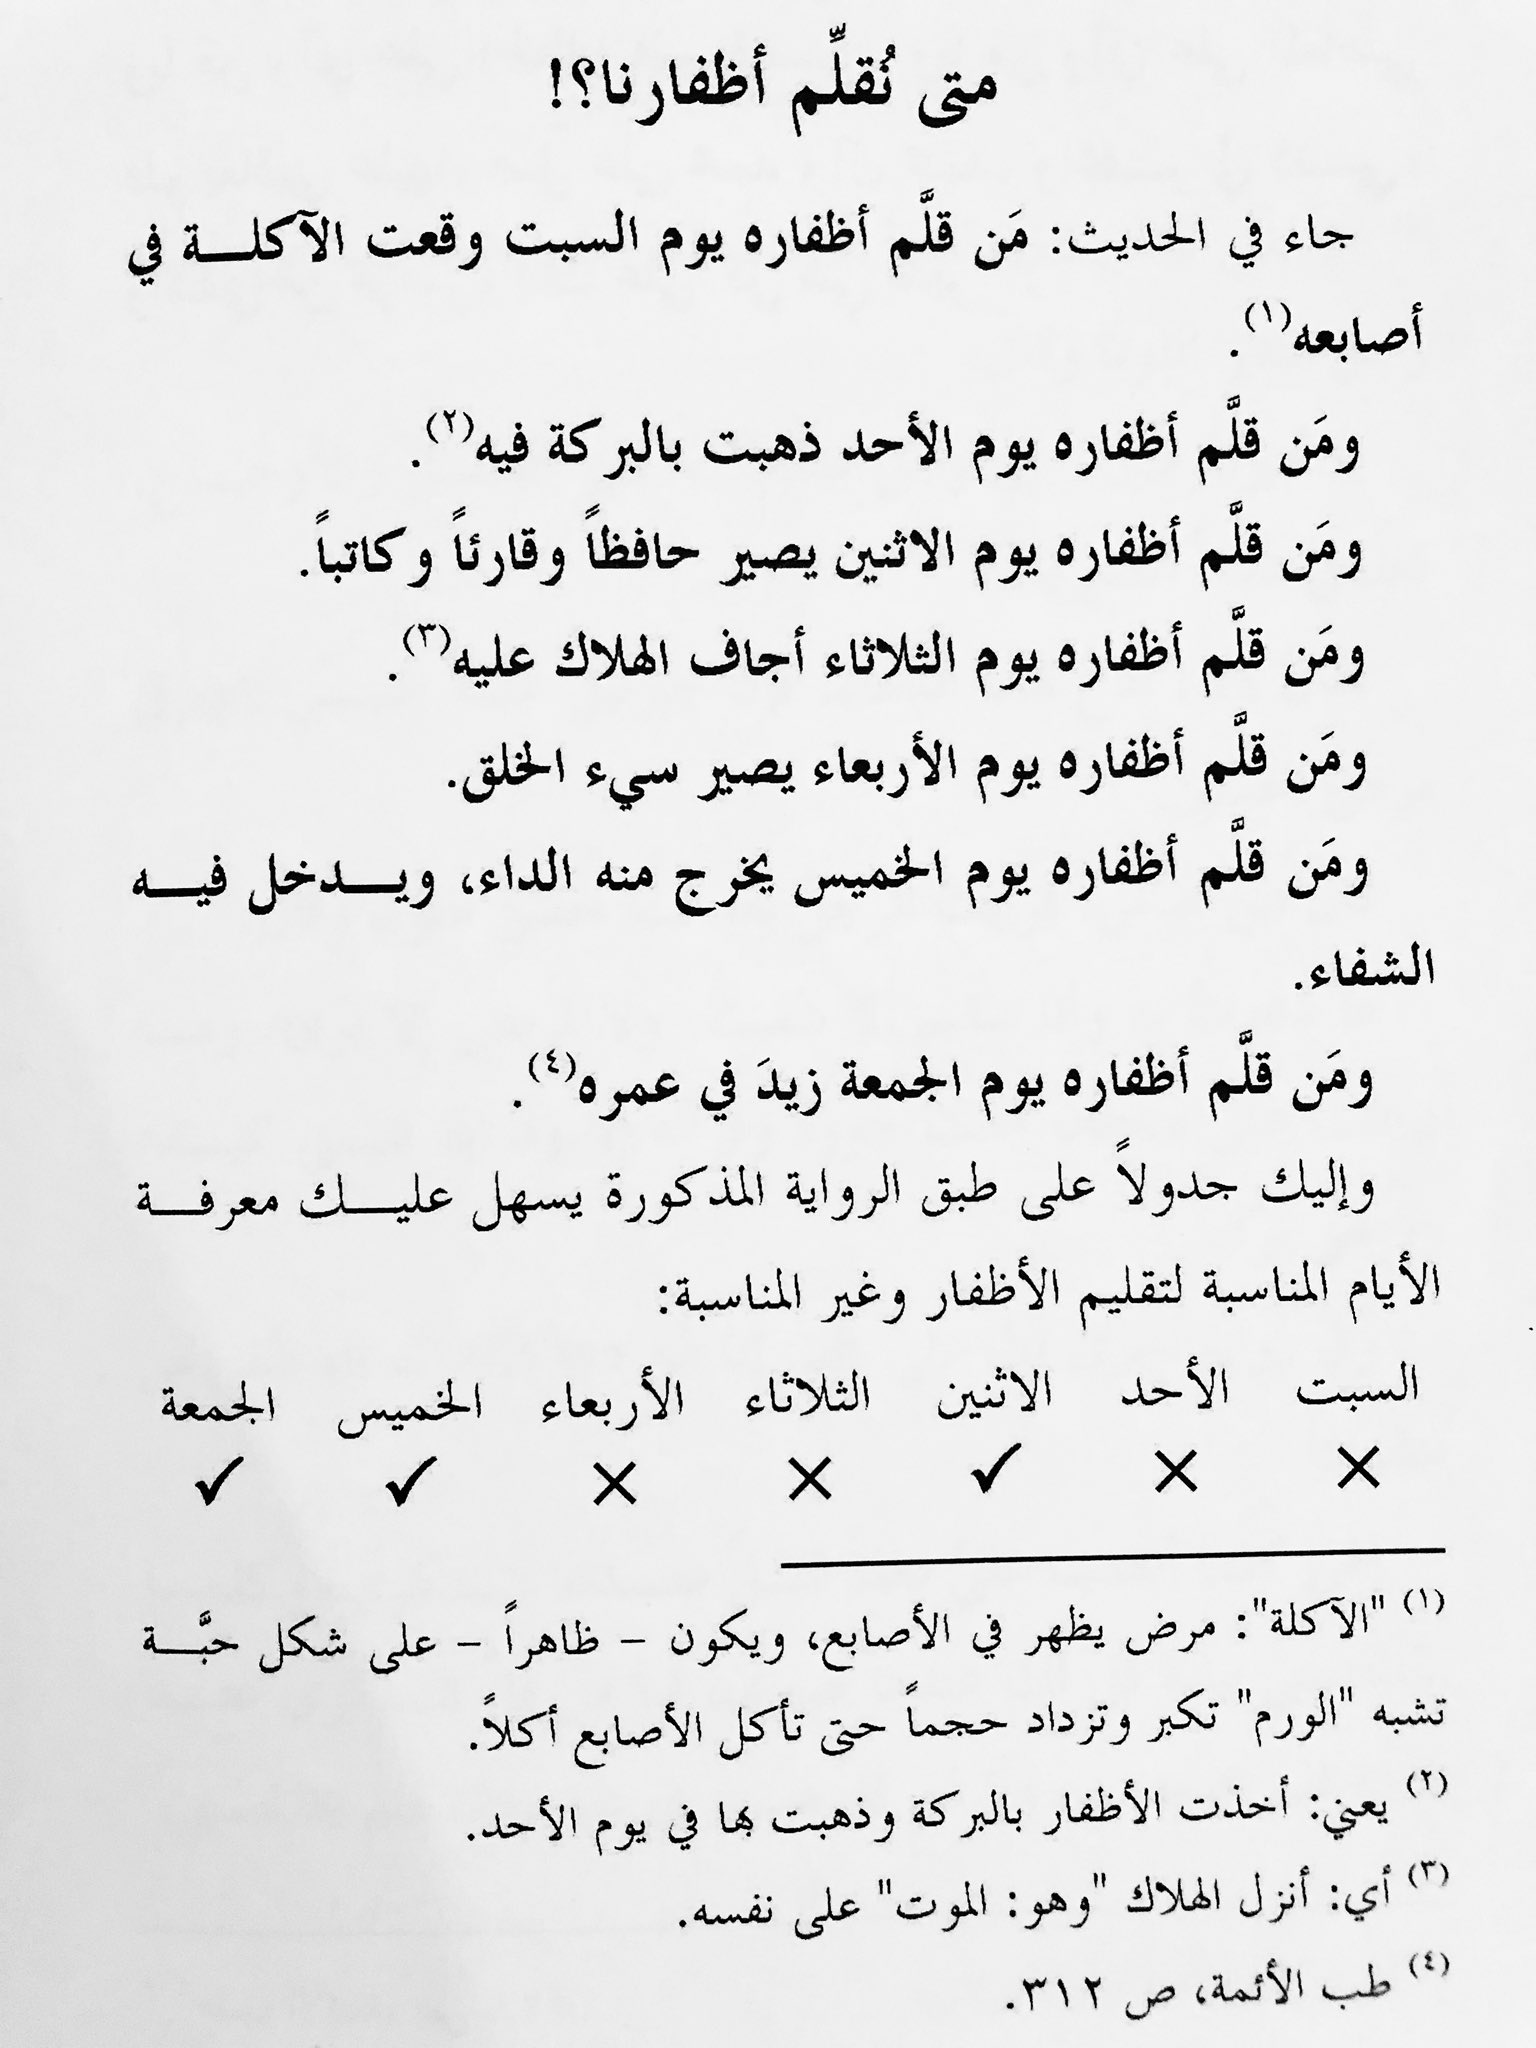 متى نُقلِّم أظفارنا؟!
جاء في الحديث: مَن قلَّم أظفاره يوم السبت وقعت الآكلـــة في
أصابعه(١).
ومَن قلَّم أظفاره يوم الأحد ذهبت بالبركة فيه(٢).
ومَن قلَّم أظفاره يوم الاثنين يصير حافظاً وقارئاً وكاتباً.
ومَن قلَّم أظفاره يوم الثلاثاء أجاف الهلاك عليه(٣).
ومَن قلَّم أظفاره يوم الأربعاء يصير سيء الخلق.
ومَن قلَّم أظفاره يوم الخميس يخرج منه الداء، ويـــدخل فيـــه
الشفاء.
ومَن قلَّم أظفاره يوم الجمعة زيدَ في عمره(٤).
وإليك جدولاً على طبق الرواية المذكورة يسهل عليـــك معرفـــة
الأيام المناسبة لتقليم الأظفار وغير المناسبة:
السبت الأحد الاثنين الثلاثاء الأربعاء الخميس الجمعة
× × ✓ × × ✓ ✓
(١) "الآكلة": مرض يظهر في الأصابع، ويكون – ظاهراً – على شكل حبَّـــة
تشبه "الورم" تكبر وتزداد حجماً حتى تأكل الأصابع أكلاً.
(٢) يعني: أخذت الأظفار بالبركة وذهبت بها في يوم الأحد.
(٣) أي: أنزل الهلاك "وهو: الموت" على نفسه.
(٤) طب الأئمة، ص ٣١٢.